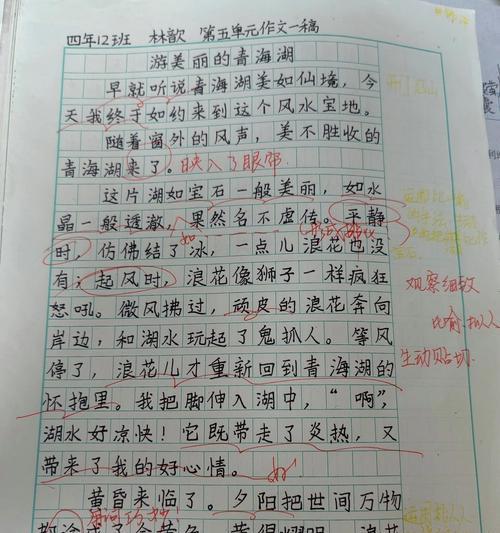 四年12班 林歆 第五单元作文一稿
游美丽的青海湖
早就听说青海湖美如仙境，今
天我终于如约来到这个风水宝地。
随着窗外的风声，美不胜收的
青海湖来了。映入了眼帘
这片湖如宝石一般美丽，如水
晶一般透澈，果然名不虚传。平静
时，仿佛结了冰，一点儿浪花也没
有；起风时，浪花像狮子一样疯狂
怒吼。微风拂过，顽皮的浪花奔向
岸边，和湖水玩起了鬼抓人。等风
停了，浪花儿才重新回到青海湖的
怀抱里。我把脚伸入湖中，“啊”，
湖水好凉快！它既带走了炎热，又
带来了我的好心情。
黄昏来临了。夕阳把世间万物
观察细致
比喻 拟人
生动贴切